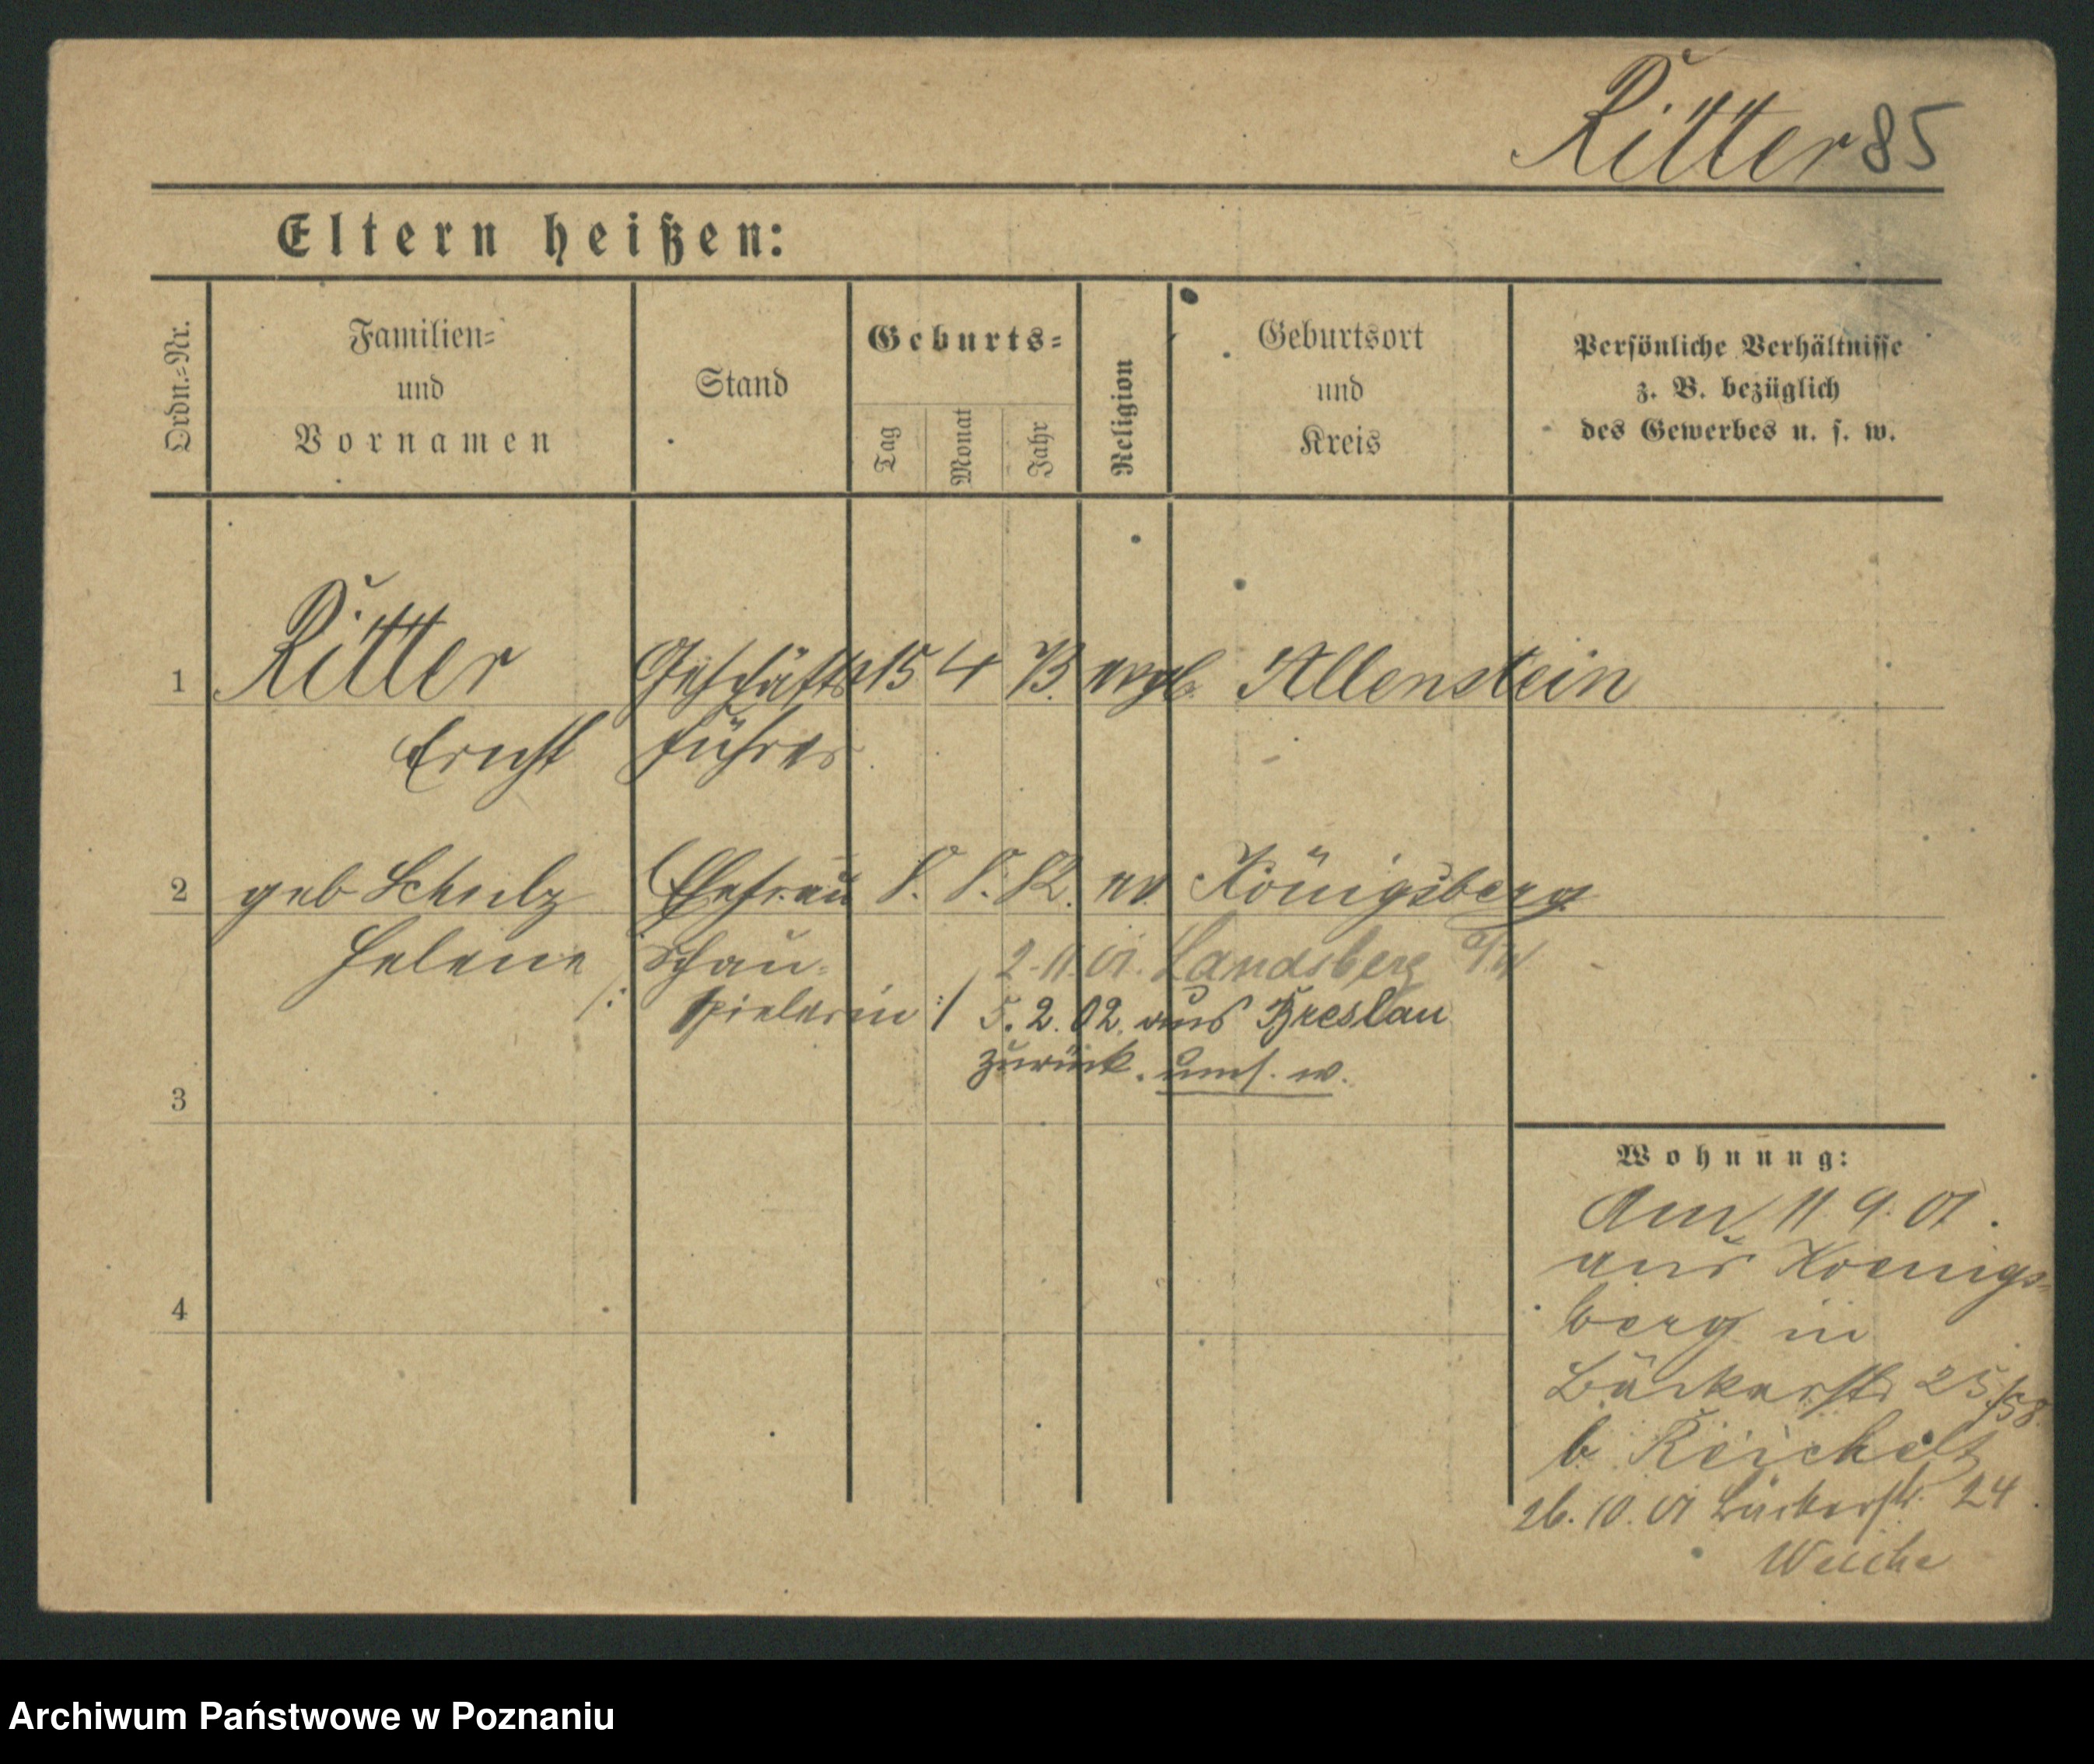 Ritter 85
Eltern heißen:
Ordn.-Nr.
Familien-
und
Vornamen
Stand
Geburts-
Tag
Monat
Jahr
Religion
Geburtsort
und
Kreis
Persönliche Verhältnisse
z. B. bezüglich
des Gewerbes u. s. w.
1 Ritter Geschäfts 15 4 73. evgl. Allenstein
Ernst führer
2 geb Schulz Ehefrau 8. 8. 82. ev. Königsberg
Helene Schau- 2.11.01. Landsberg a/W
/: spielerin :/ 5. 2. 02. aus Breslau
zurück. w.
3
Wohnung:
Am 11 9. 01.
aus Koenigs-
4
berg in
Bäckerstr 25/58.
b. Reichelt
26. 10. 01 Bäckerstr. 24.
Weiche
Archiwum Państwowe w Poznaniu